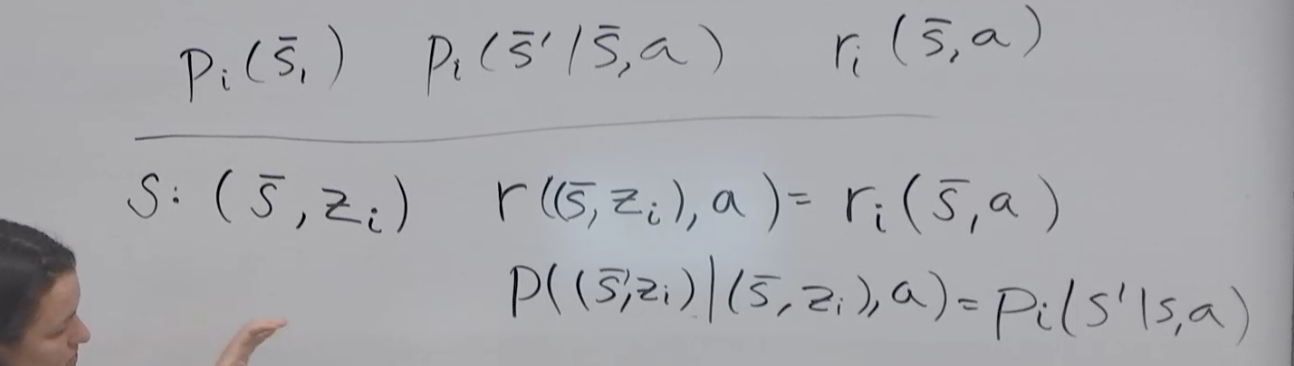 p_i(s̄_1) p_i(s̄'|s̄,a) r_i(s̄,a)
s: (s̄,z_i) r((s̄,z_i),a)=r_i(s̄,a)
p((s̄',z_i)|(s̄,z_i),a)=p_i(s'|s,a)